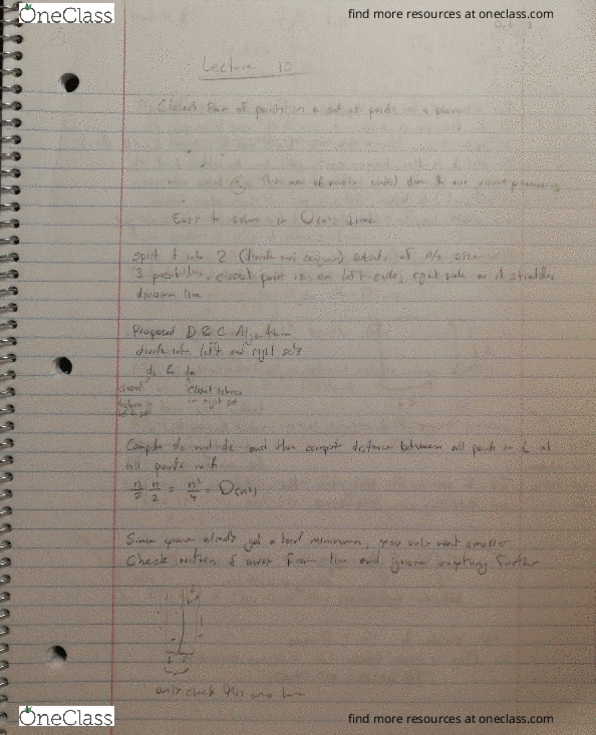 OneClass
find more resources at oneclass.com
Oct
Lecture 10
Closest Pair of points in a set of points in a plane
Easy to solve in O(n²) time
split it into 2 (divide and conquer) of n/2 size
3 possibilities, closest point is on left side, right side or it straddles
division line
Proposed D & C Algorithm
divide into left and right sets
closest
closest distance
in right set
Compute and and then compute distance between all points in L at
all points in R
n/2 n/2 = n²/4 = O(n²)
Since you already got a local minimum, you only want smaller
Check within δ away from line and ignore anything further
only check this area here
OneClass
find more resources at oneclass.com